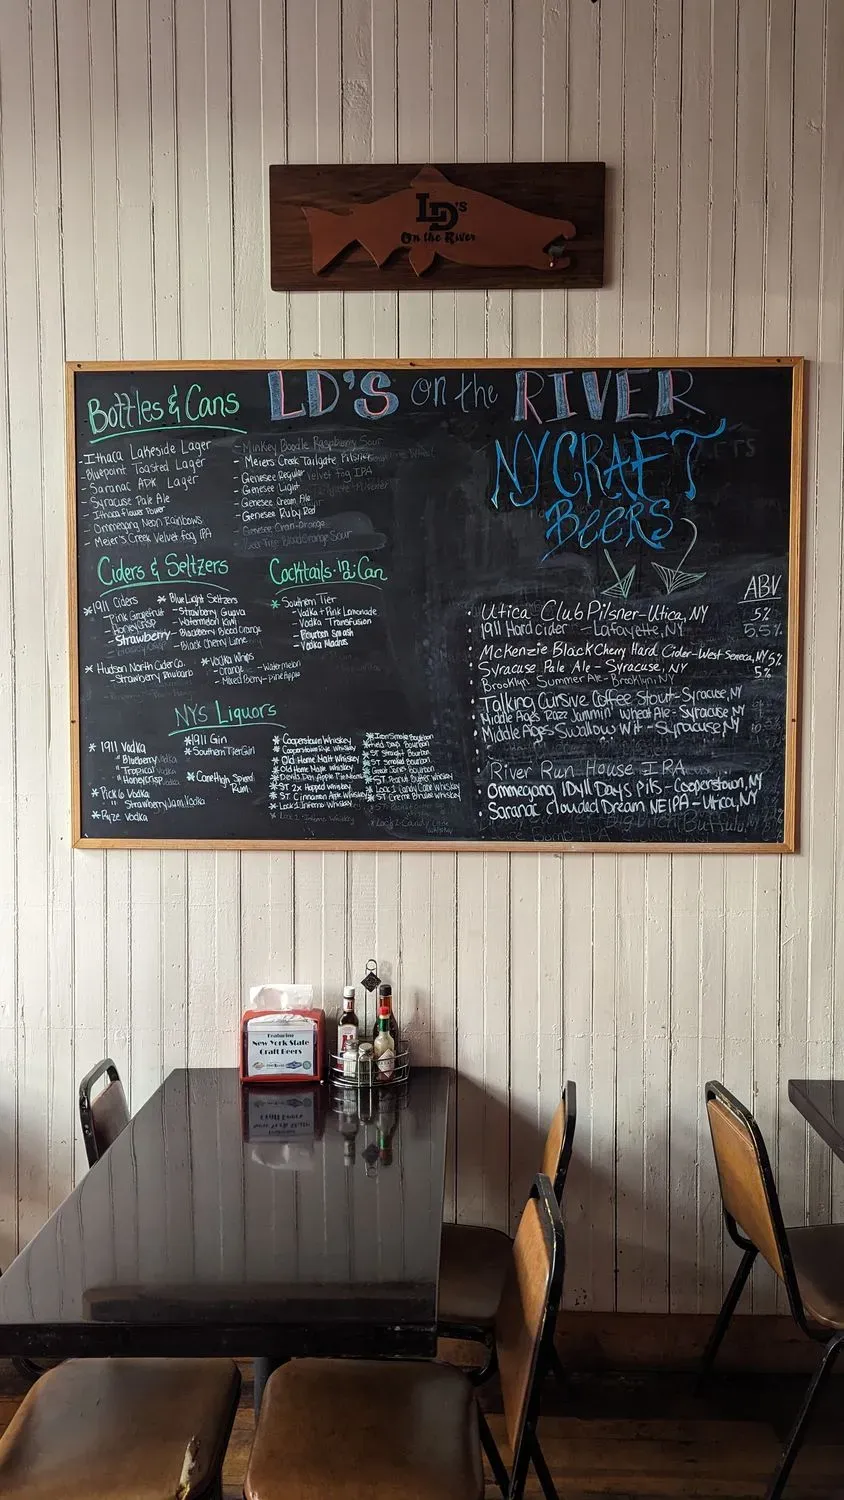 LD's
On the River
LD'S on the RIVER
Bottles & Cans
- Ithaca Lakeside Lager
- Bluepoint Toasted Lager
- Saranac ADK Lager
- Syracuse Pale Ale
- Ithaca Flower Power
- Ommegang Neon Rainbows
- Meier's Creek Velvet Fog IPA
- Minkey Boodle Raspberry Sour
- Meiers Creek Tailgate Pilsner
- Genesee Regular
- Genesee Light
- Genesee Cream Ale
- Genesee Ruby Red
- Genesee Cran-Orange
Blood Orange Sour
Ciders & Seltzers
* 1911 Ciders
- Pink Grapefruit
- Honeycrisp
- Strawberry
* Hudson North Cider Co.
- Strawberry Rhubarb
* Blue Light Seltzers
- Strawberry Guava
- Watermelon Kiwi
- Blackberry Blood Orange
- Black Cherry Lime
* Vodka Whips
- Orange - Watermelon
- Mixed Berry - Pineapple
Cocktails in a Can
* Southern Tier
- Vodka + Pink Lemonade
- Vodka Transfusion
- Bourbon Smash
- Vodka Madras
NYS Liquors
* 1911 Vodka
" Blueberry Vodka
" Tropical Vodka
" Honeycrisp Vodka
* Pick 6 Vodka
" Strawberry Jam Vodka
* Ryze Vodka
* 1911 Gin
* Southern Tier Gin
* Cane High Speed Rum
* Cooperstown Whiskey
* Cooperstown Rye Whiskey
* Old Home Malt Whiskey
* Old Home Maple Whiskey
* Devils Den Apple Pie
* ST 2x Hopped Whiskey
* ST Cinnamon Apple Whiskey
* Lock 1 Inferno Whiskey
* Iron Smoke Bourbon
* Bourbon
* ST Straight Bourbon
* ST Smoked Bourbon
* Bourbon
* ST Peanut Butter Whiskey
* Lock 1 Candy Cane Whiskey
* ST Creme Brulee Whiskey
NY CRAFT
BEERS
ABV
Utica Club Pilsner - Utica, NY 5%
1911 Hard Cider - Lafayette, NY 5.5%
McKenzie Black Cherry Hard Cider - West Seneca, NY 5%
Syracuse Pale Ale - Syracuse, NY 5%
Brooklyn Summer Ale - Brooklyn, NY
Talking Cursive Coffee Stout - Syracuse, NY
Middle Ages Razz Jammin' Wheat Ale - Syracuse NY
Middle Ages Swallow Wit - Syracuse, NY
River Run House IPA
Ommegang Idyll Days Pils - Cooperstown, NY
Saranac Clouded Dream NEIPA - Utica, NY
Featuring
New York State
Craft Beers